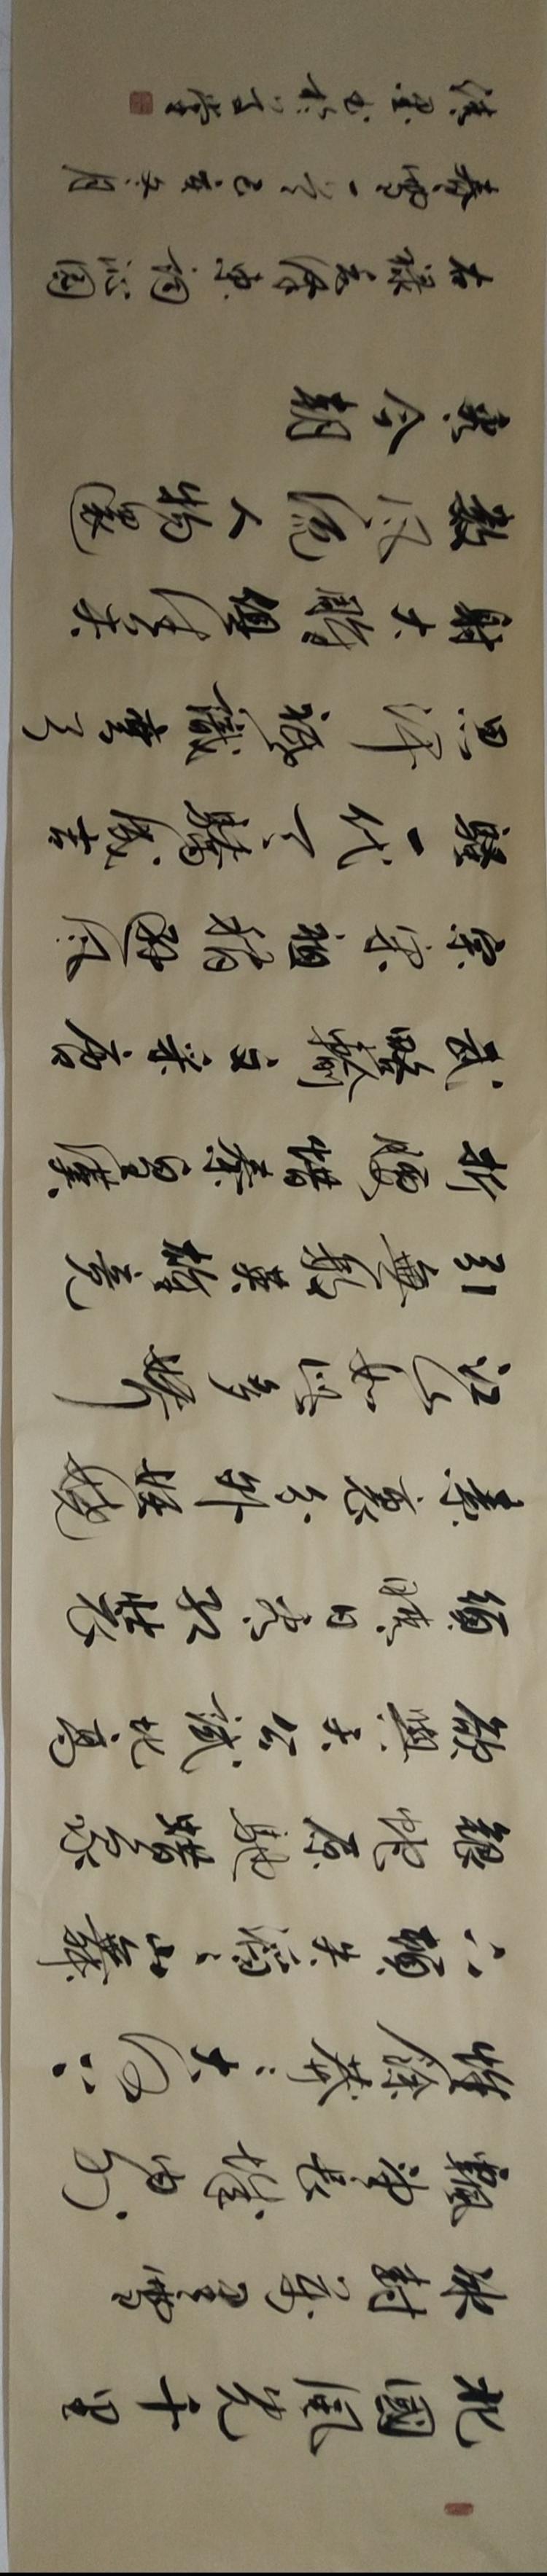 北國風光千里
冰封萬里雪
飄望長城內外
惟餘莽〻大河上
下頓失滔〻山舞
銀蛇原馳蠟象
欲與天公試比高
須晴日看紅裝
素裹分外妖嬈
江山如此多嬌
引無數英雄竞
折腰惜秦皇漢
武略輸文采唐
宗宋祖稍遜風
騷一代天驕成吉
思汗祗識彎弓
射大雕俱往矣
數風流人物還
看今朝
右錄毛澤東詞沁園
春雪一首己亥冬月
書於